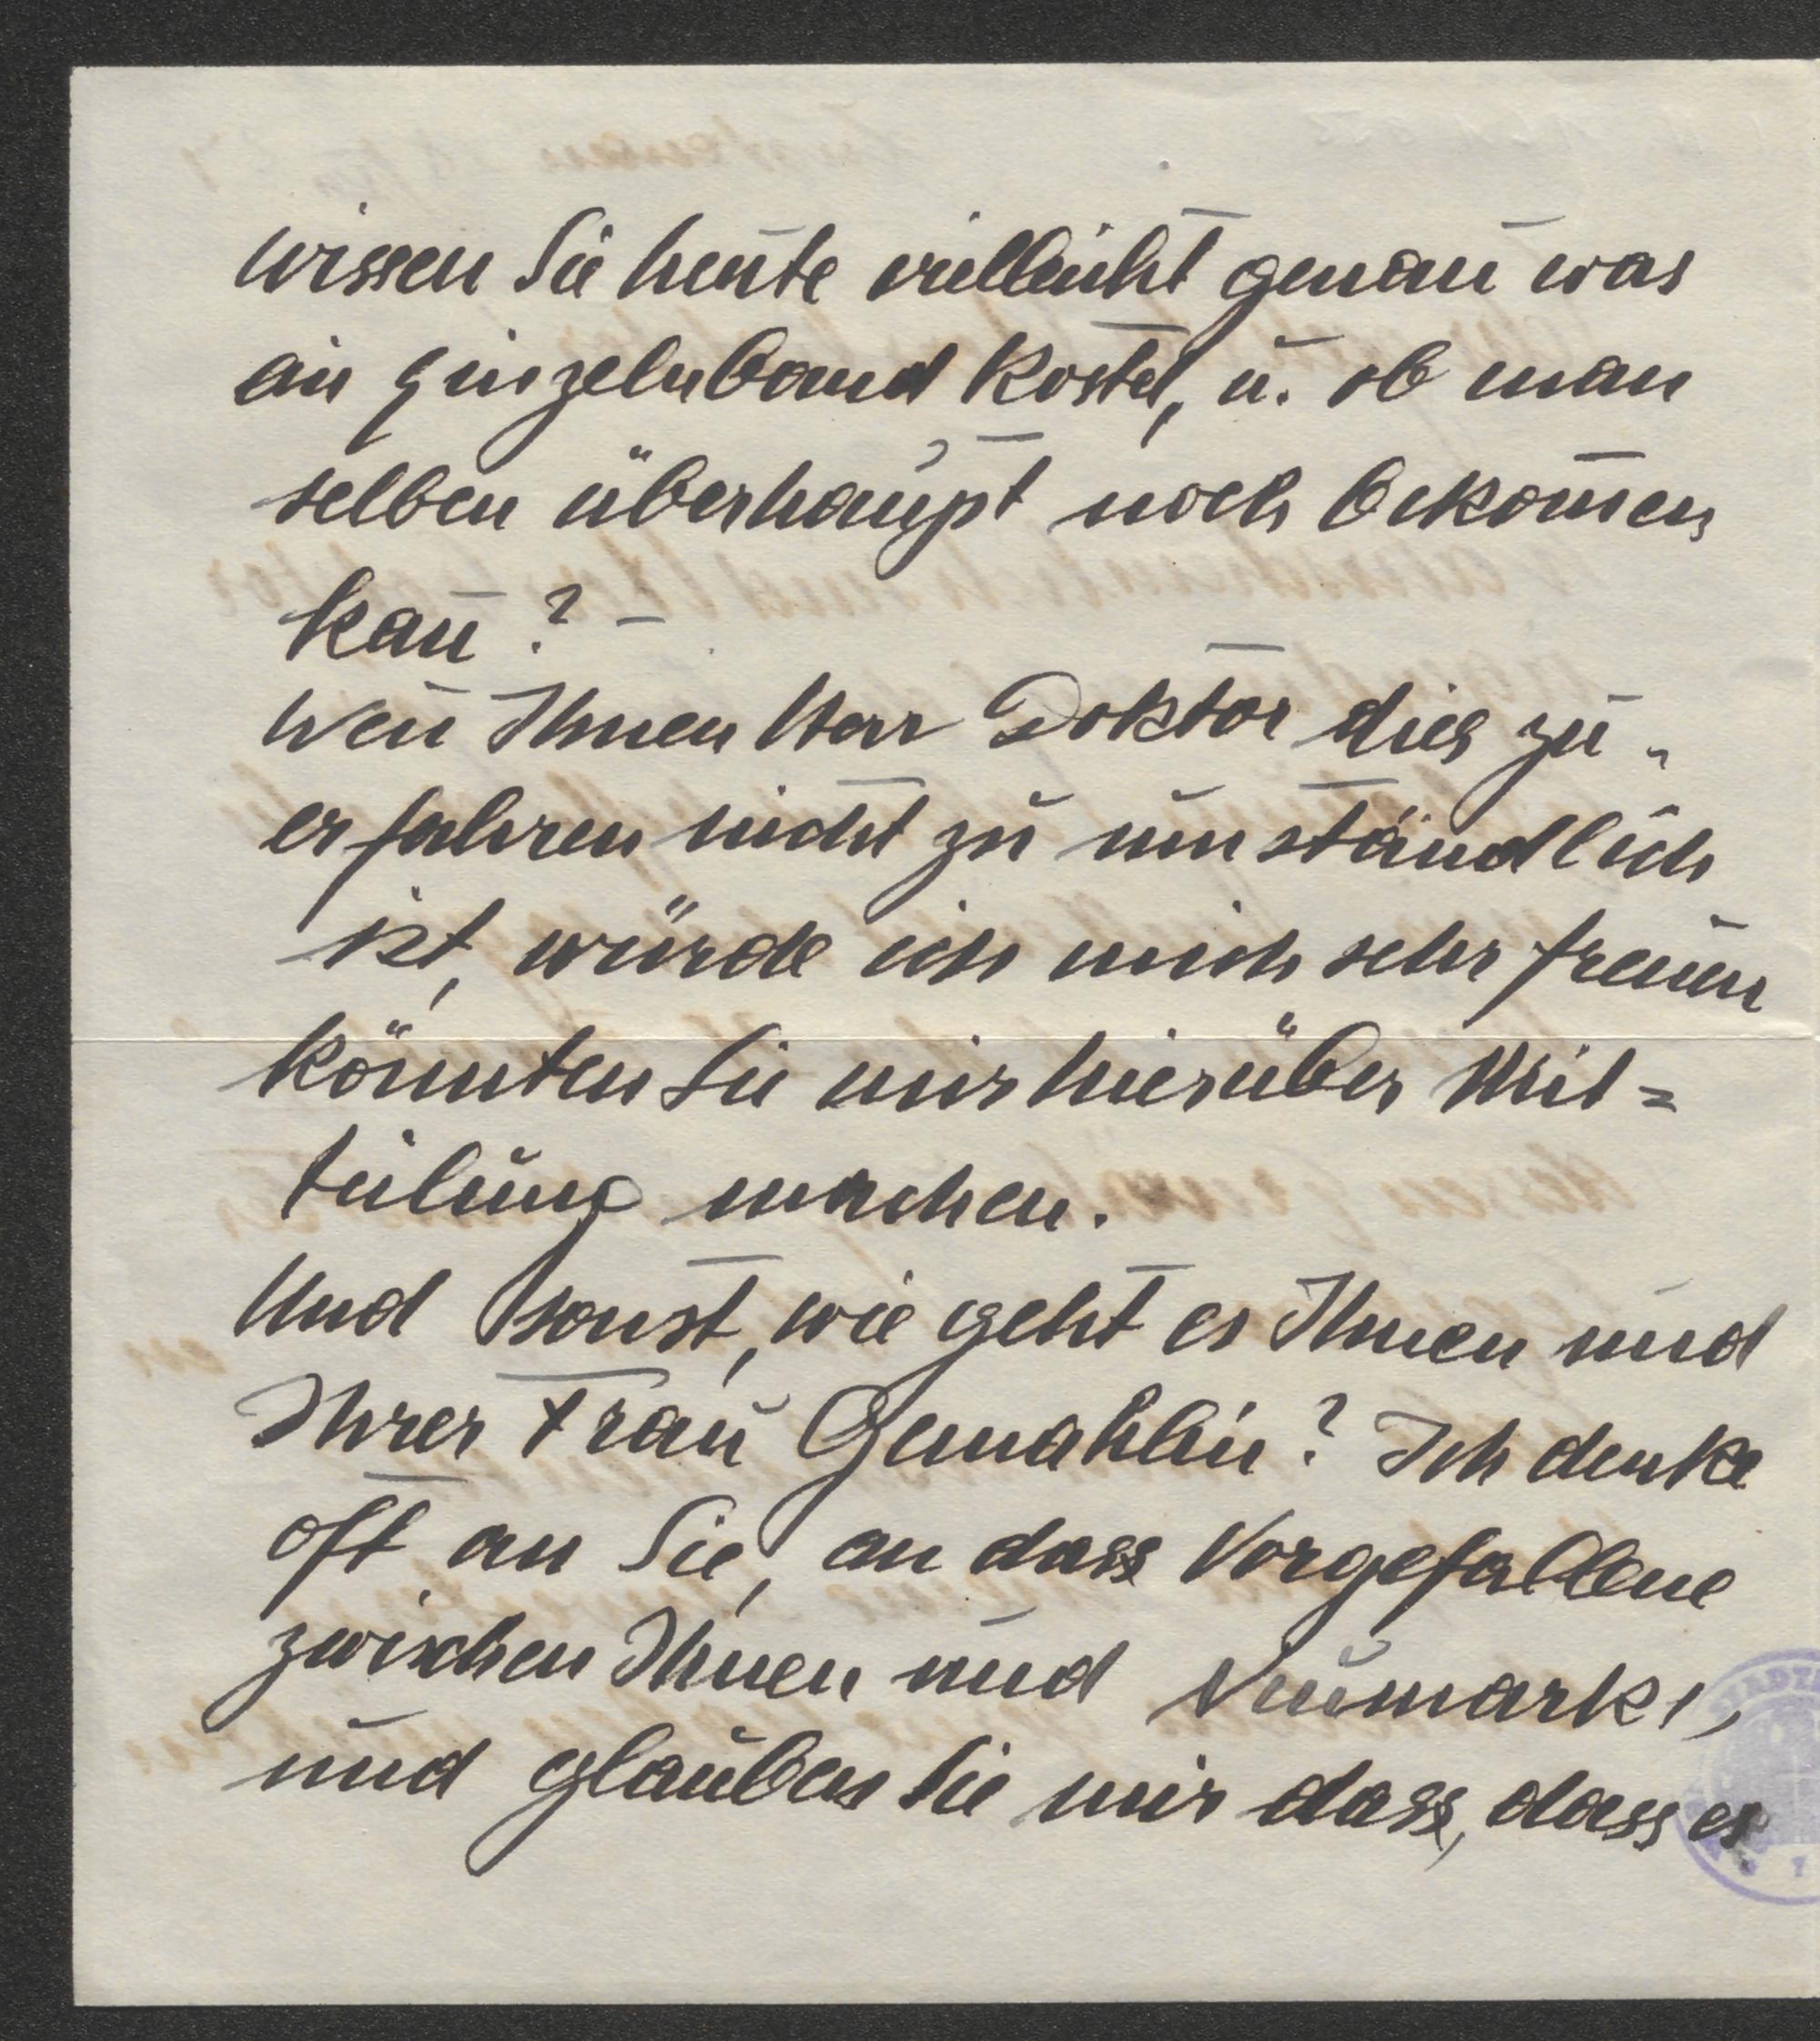 wissen Sie heute vielleicht genau was
ein Einzelnband kostet, u. ob man
selben überhaupt noch bekom̅en
kan̅? –
Wen̅ Ihnen Herr Doktor dies zu
erfahren nicht zu umständlich
ist, würde ich mich sehr freuen
könnten Sie mir hierüber Mit=
teilung machen.
Und sonst, wie geht es Ihnen und
Ihrer Frau Gemahlin? Ich denke
oft an Sie, an dass Vorgefallene
zwischen Ihnen und Neumarks,
und glauben Sie mir dass, dass es